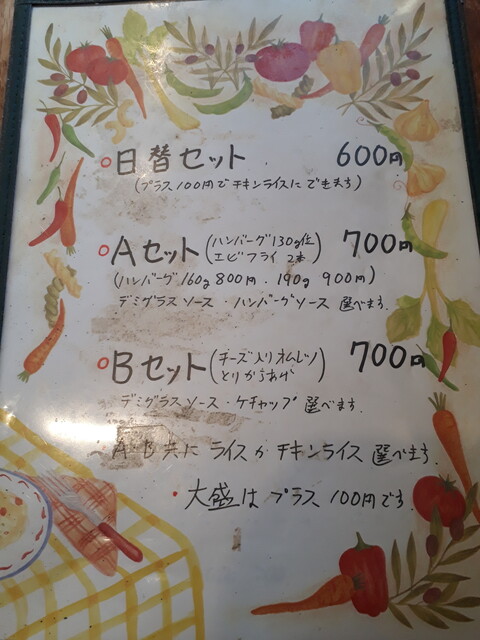 日替セット 600円
(プラス100円でチキンライスにできます)
Aセット(ハンバーグ130g位 エビフライ2本) 700円
(ハンバーグ160g 800円.190g 900円)
デミグラスソース・ハンバーグソース 選べます.
Bセット(チーズ入りオムレツ とりからあげ) 700円
デミグラスソース・ケチャップ 選べます.
A・B共に ライスか チキンライス 選べます.
・大盛は プラス 100円です.